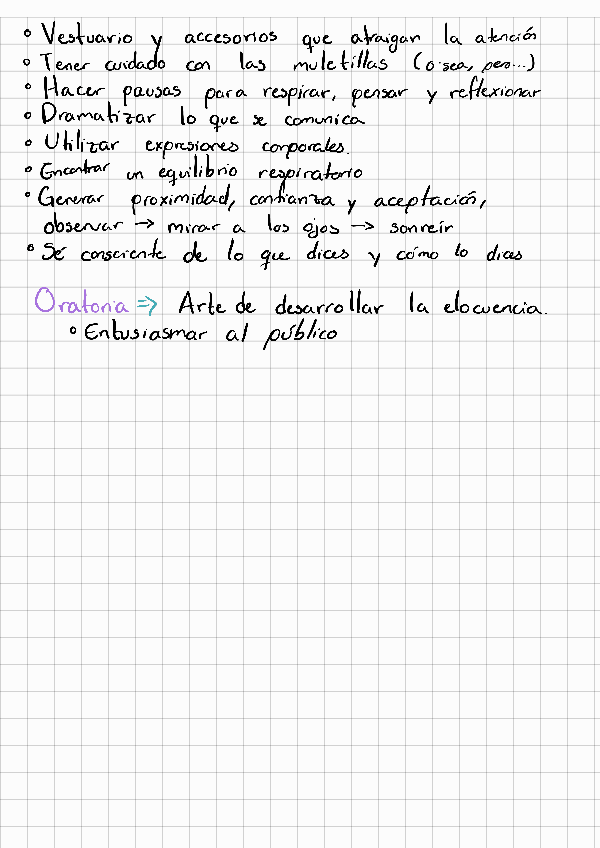 ° Vestuario y accesorios que atraigan la atención
° Tener cuidado con las muletillas (o sea, pero...)
° Hacer pausas para respirar, pensar y reflexionar
° Dramatizar lo que se comunica
° Utilizar expresiones corporales.
° Encontrar un equilibrio respiratorio
° Generar proximidad, confianza y aceptación,
observar → mirar a los ojos → sonreír
° Sé consciente de lo que dices y cómo lo dices
Oratoria ⇒ Arte de desarrollar la elocuencia.
° Entusiasmar al público